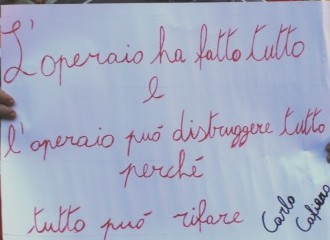 L'operaio ha fatto tutto
e
l'operaio può distruggere tutto
perché
tutto può rifare
Carlo Cafiero